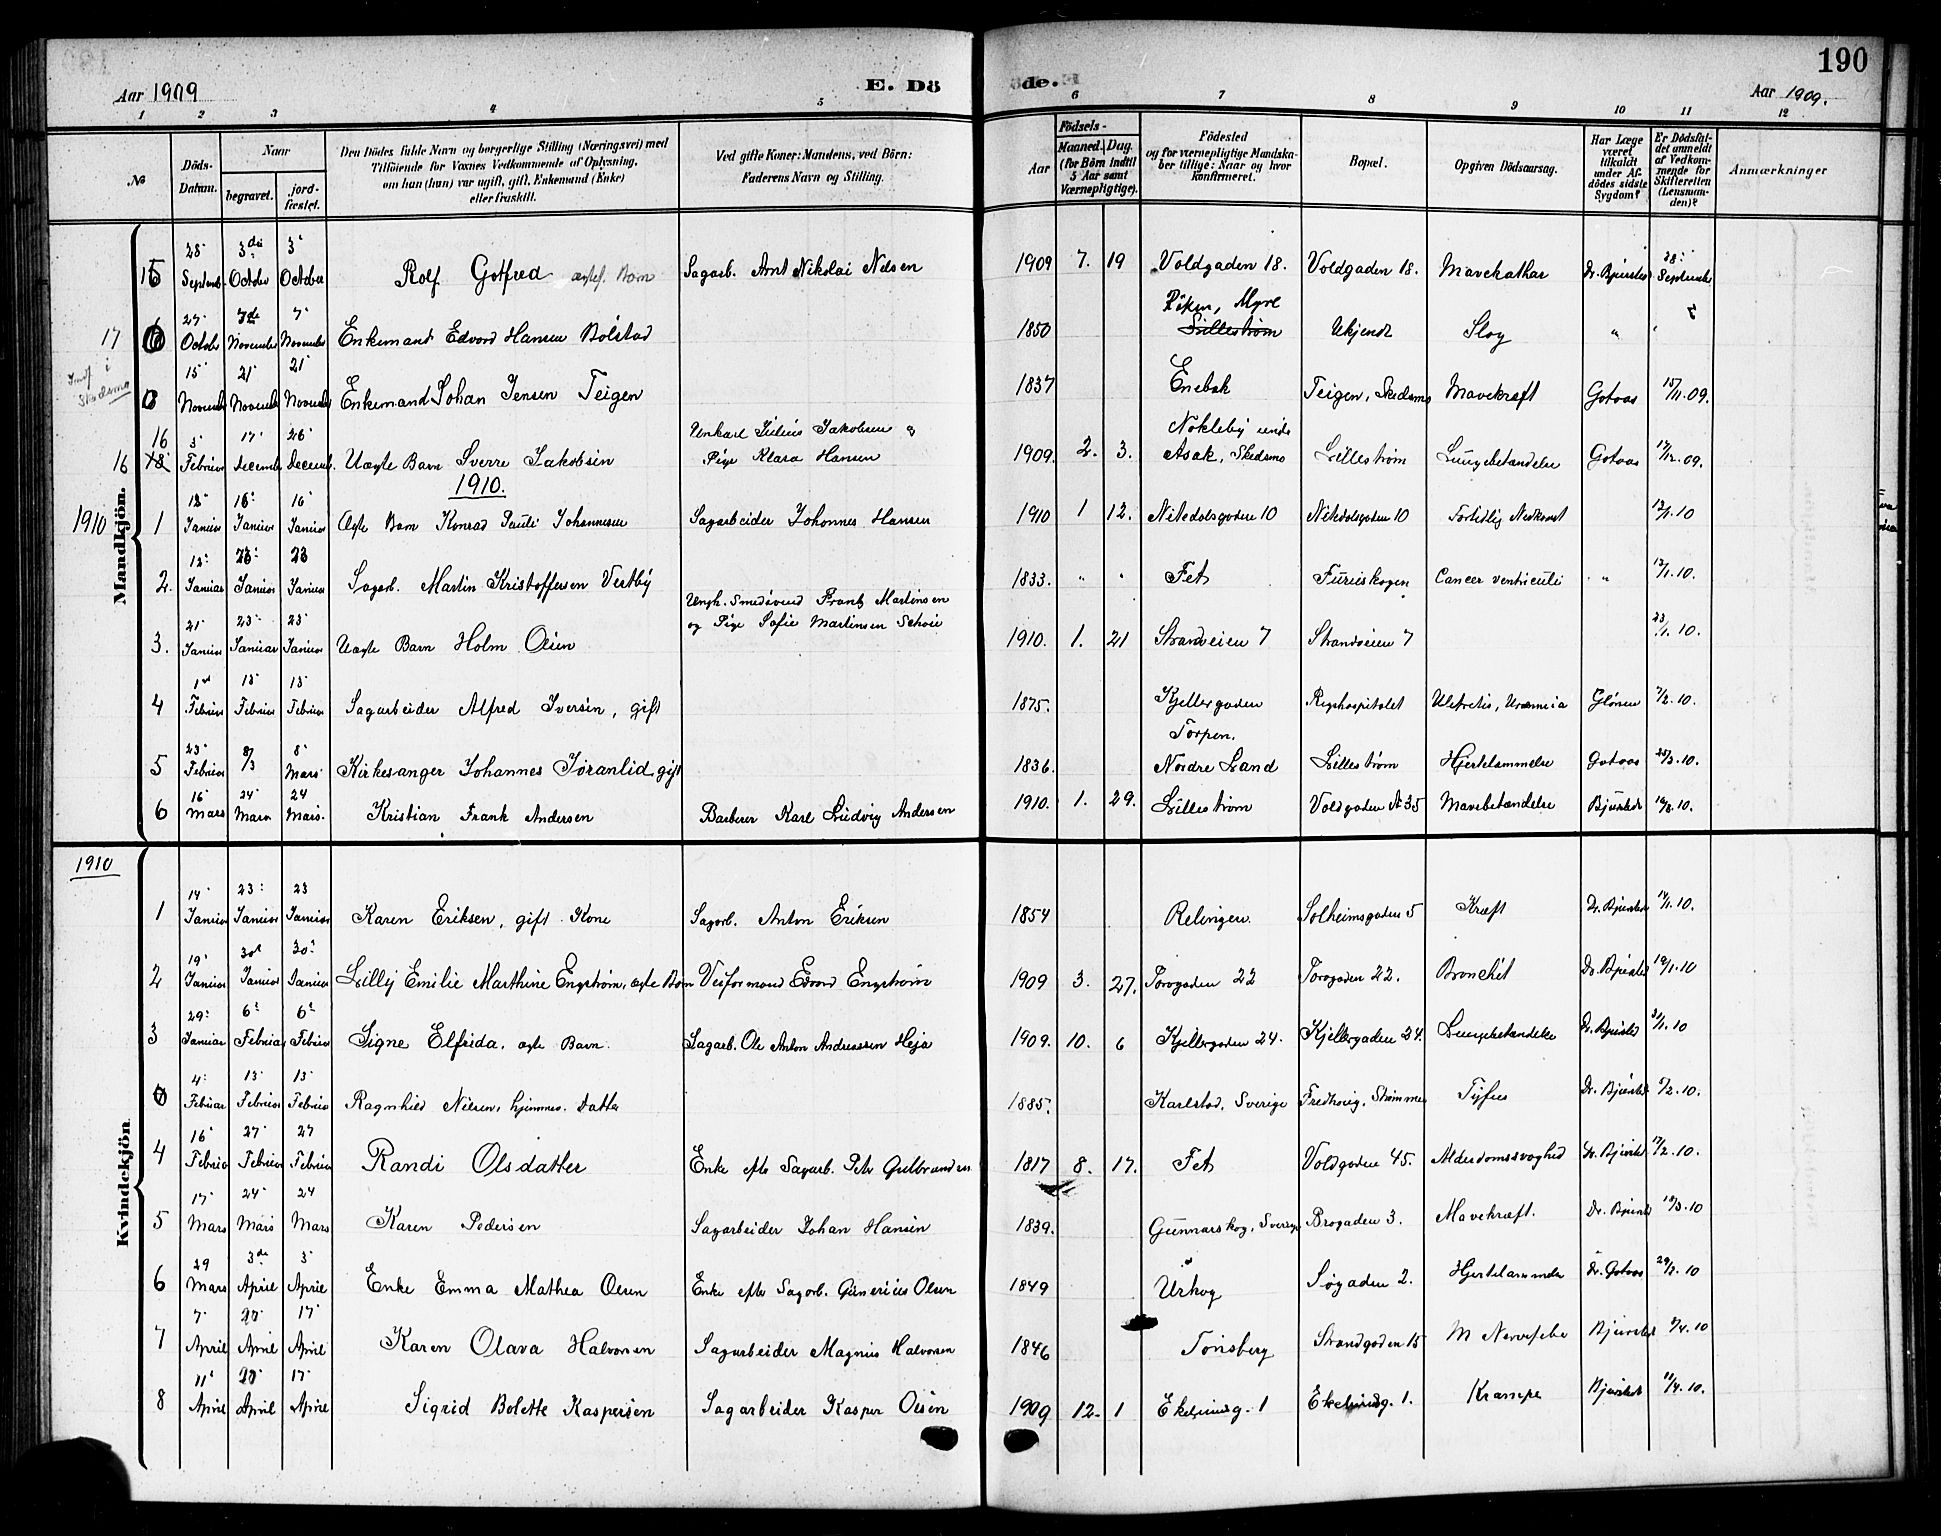 190
Aar 1909
E. Dö
de.
Aar 1909.
1 2 3 4 5 6 7 8 9 10 11 12
№
Döds-
Datum.
Naar
begravet.
jord-
fæstet.
Den Dödes fulde Navn og borgerlige Stilling (Næringsvei) med
Tilföiende for Voxnes Vedkommende af Oplysning,
om han (hun) var ugift, gift, Enkemand (Enke)
eller fraskilt.
Ved gifte Koner: Mandens, ved Börn:
Faderens Navn og Stilling.
Födsels-
Aar
Maaned. Dag.
(for Börn indtil
5 Aar samt
Værnepligtige).
Födested
og for værnepligtige Mandska-
ber tillige: Naar og hvor
konfirmeret.
Bopæl.
Opgiven Dödsaarsag.
Har Læge
været
tilkaldt
under Af-
dödes sidste
Sygdom?
Er Dödsfal-
det anmeldt
af Vedkom-
mende for
Skifteretten
(Lensman-
den)?
Anmærkninger
Mandkjön.
15 28' Septemb. 3die October 3' October Rolf Gotfred ægtef. Barn Sagarb. Arnt Nikolai Nilsen 1909 7. 19 Voldgaden 18. Voldgaden 18. Mavekathar Dr. Bjursted 28' September
17 27' October 7de November 7' November Enkemand Edvard Hansen Bolstad 1850 Röken, Myre Lillestrøm Ukjendt Slag " "
Indf. i Skedsmo
0 15' November 21' November 21' November Enkemand Johan Jensen Teigen 1837 Enebak Teigen, Skedsmo Mavekræft Gotaas 15/11.09.
16 16 18 5' Februar 17' Decemb 26' Decemb. Uægte Barn Sverre Jakobsen Unkarl Julius Jakobsen og Pige Klara Hansen 1909. 2. 3. Nokleby under Asak, Skedsmo Lillestrøm Lungebetændelse Gotaas 17/12.09.
1910.
1910 1 12' Januar 16' Januar 16' Januar Ægte Barn Konrad Pauli Johannesen Sagarbeider Johannes Hansen 1910 1 12. Nitedalsgaden 10 Nitedalsgaden 10 Fortidlig Nedkomst 12/1.10
2. 12' Januar 23' Januar 23 Januar Sagarb. Martin Kristoffersen Vestby 1833. " " Fet Furuskogen Cancer ventriculi " 12/1.10.
3. 21' Januar 23' Januar 23' Januar Uægte Barn Holm Olsen Ungk. Smedsvend Frantz Martinsen og Pige Sofie Martinsen 1910. 1. 21 Strandveien 7 Strandveien 7 23/1.10.
4 1st Februar 13' Februar 13' Februar Sagarbeider Alfred Iversen, gift 1875. Kjellergaden Rigshospitalet Uretritis, Uræmia 7/2.10.
5 23' Februar 8/3 8' Mars Kirkesanger Johannes Joranlid gift 1836. Torpen. Nordre Land Lillestrøm Hjertelammelse Gotaas 25/2.10.
6 16' Mars 24' Mars 24 Mars. Kristian Frank Andersen Barberer Karl Ludvig Andersen 1910. 1. 29. Lillestrøm Voldgaden № 35 Mavebetændelse Bjursted 16/3.10.
1910
Kvindekjön.
1 14' Januar 23' Januar 23 Januar Karen Eriksen, gift Kone Sagarb. Anton Eriksen 1854 Relingen. Solheimsgaden 5 Kræft Dr. Bjursted 14/1.10.
2 19' Januar 30' Januar 30' Januar Lilly Emilie Marthine Engstrøm, ægte Barn Veiformand Edvard Engstrøm 1909 3. 27. Torvgaden 22 Torvgaden 22. Bronchit Dr. Bjursted 19/1.10
3 29' Januar 6' Februar 6' Februar Signe Elfrida, ægte Barn. Sagarb. Ole Anton Andreassen Heja 1909. 10. 6 Kjellergaden 24. Kjellergaden 24. Lungebetændelse Dr. Bjursted 31/1.10
0 4' Februar 13' Februar 13' Februar Ragnhild Nilsen, hjemmev. Datter 1885. Karlstad, Sverige Fredhoug, Strømmen Tyfus Dr. Bjursted 5/2.10.
4 16' Februar 27' Februar 27 Februar Randi Olsdatter Enke efter Sagarb. Peter Gulbrandsen 1817 8. 17. Fet Voldgaden 45. Alderdomssvaghed Dr. Bjursted 17/2.10.
5 17' Mars 24' Mars 24 Mars Karen Pedersen Sagarbeider Johan Hansen 1839. Gunnarskog, Sverige Brogaden 3. Mavekræft. Dr. Bjursted 18/3.10
6 29 Mars 3de April 3' April Enke Emma Mathea Olsen Enke efter Sagarb. Gunerius Olsen 1849 Urskog Søgaden 2. Hjertelammelse Dr. Gotaas 29/3.10
7 7' April 17' April Karen Olava Halvorsen Sagarbeider Magnus Halvorsen 1846 Tønsberg Strandgaden 15 Nervefeber Bjursted 8/4.10
8 11' April April 17' April Sigrid Bolette Kaspersen Sagarbeider Kasper Olsen 1909 12. 1 Ekelundg. 1 Ekelundg. 1. Krampe Bjursted 11/4.10.